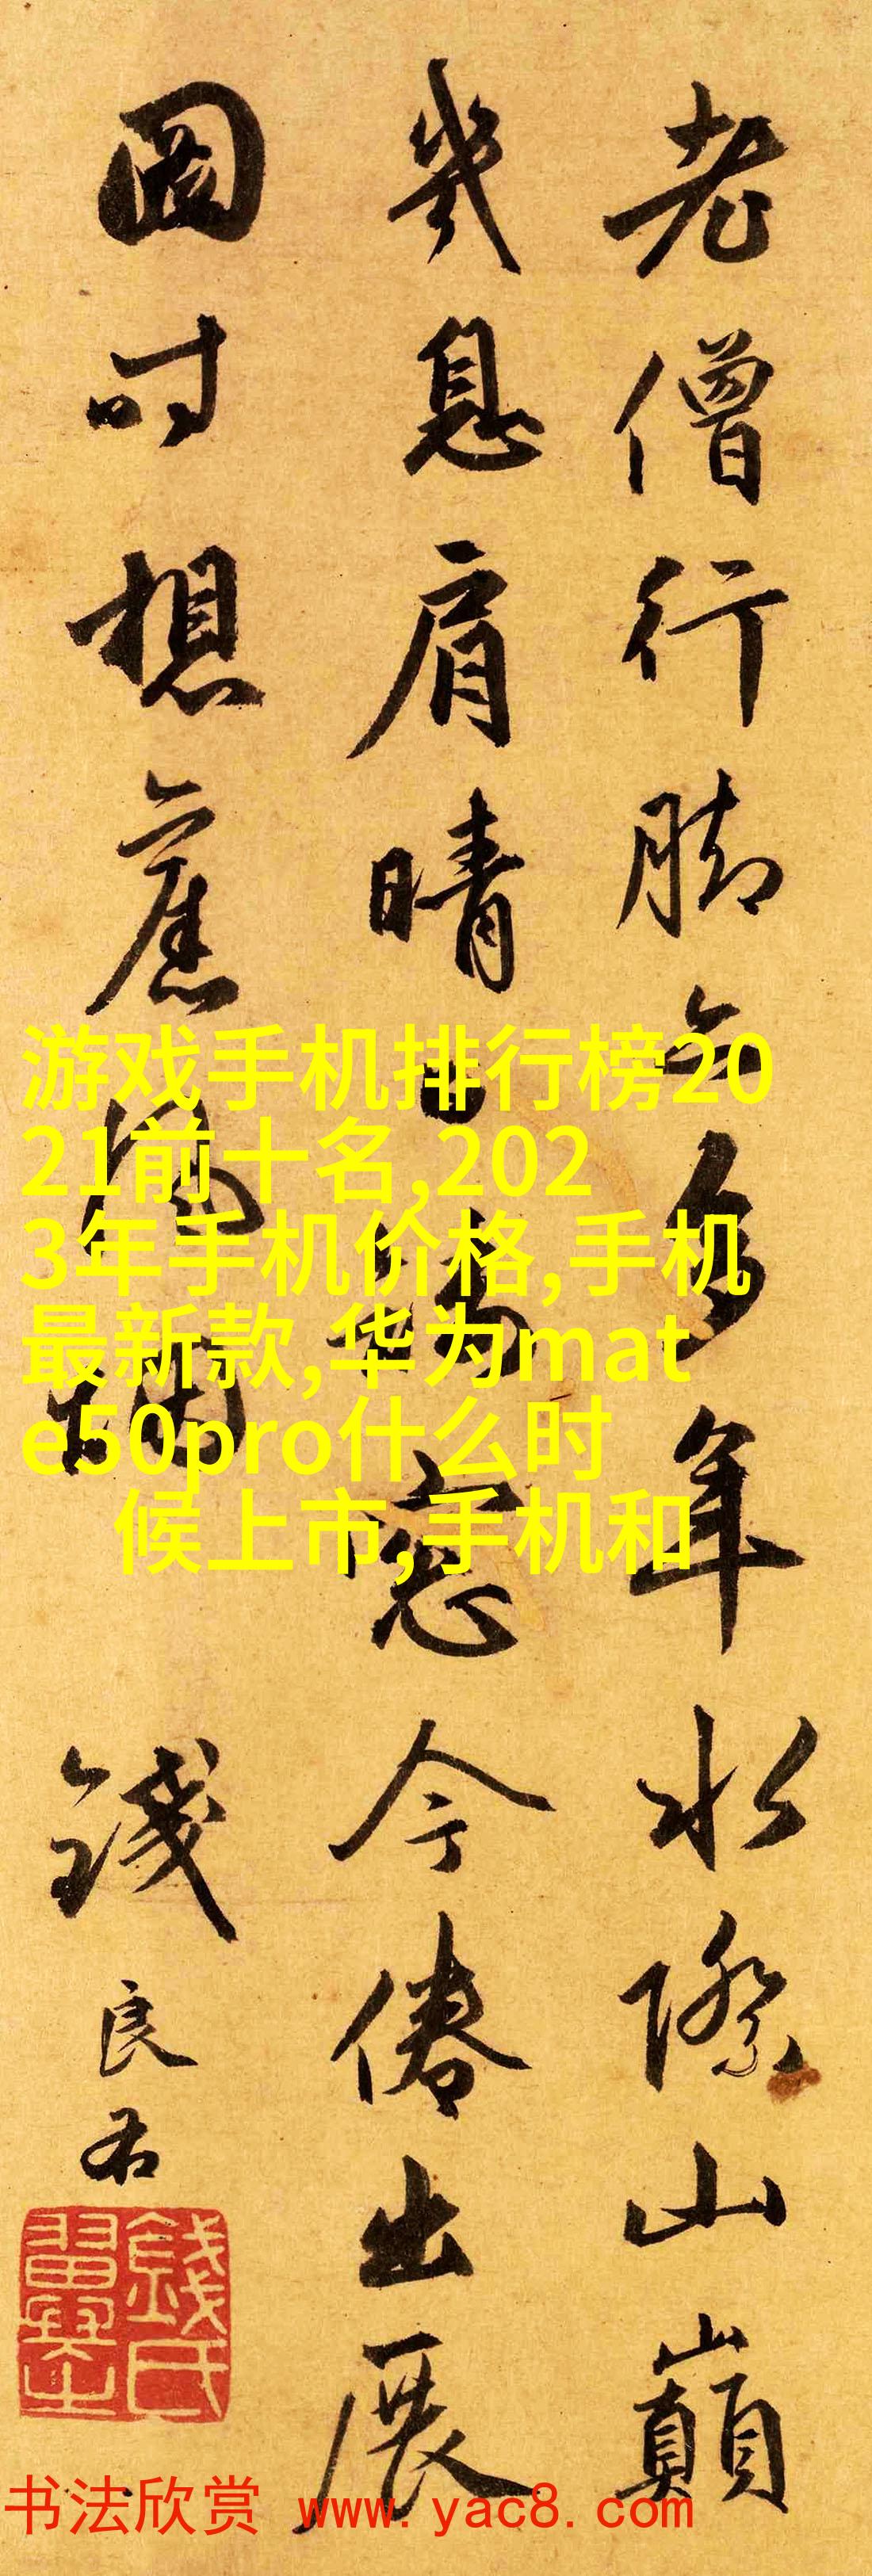 老僧行脚多年水際山巔
幾息肩晴日窓今倦出展
圖时想舊風烟
錢良右
錢氏翼之
游戏手机排行榜20
21前十名,202
3年手机价格,手机
最新款,华为mat
e50pro什么时
候上市,手机和
书法欣赏 www.yac8.com